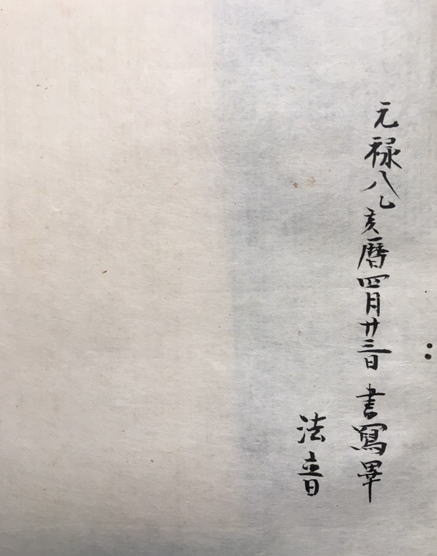 元禄八乙亥暦四月廿三日書寫畢
法音